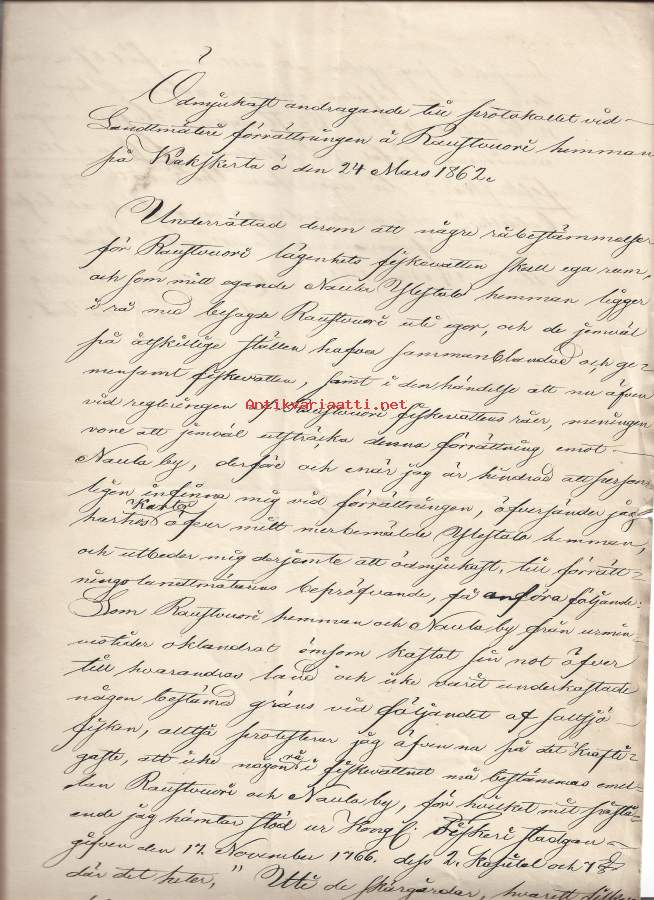 Ödmjukast andragande till protokollet vid
Landtmäteri förrättningen å Raustvuori hemman
på Kakskerta ö den 24 Mars 1862.
Underrättad derom att några råbestämmelser
för Raustvuori lägenhets fiskevatten skall ega rum,
och som mitt egande Naula Ylestalo hemman ligger
i rå med besagde Raustvuori uti egor, och de jemväl
på åtskillige ställen hafva sammanblandad och ge-
mensamt fiskevatten, samt i den händelse att nu äfven
vid regleringen af Raustvuori fiskevattens råer, meningen
vore att jemväl utsträcka denna förrättning emot
Naula by, derföre och enär jag är hindrad att person-
ligen infinna mig vid förrättningen, öfversänder jag
Karta
härhos öfver mitt merbemälde Ylestalo hemman,
och utbeder mig derjemte att ödmjukast, till förrätt-
nings landtmätarens bepröfvande, få anföra följande:
Som Raustvuori hemman och Naula by från urmin-
nestider oklandrat ömsom kastat sin not öfver
till hvarandras land och icke varit underkastade
någon bestämd gräns vid följandet af saltsjö-
fisken, alltså protesterar jag äfven nu på det krafti-
gaste, att icke någon rå i fiskevattnet må bestämmas emel-
lan Raustvuori och Naula by, för hvilket mitt påstå-
ende jag hämtar stöd ur Kongl. Fiskeri stadgan
gifven den 17. November 1766. dess 2. Kapitel och 7 §
där det heter, " Uti de skärgårdar, hvarest
Antikvariaatti.net